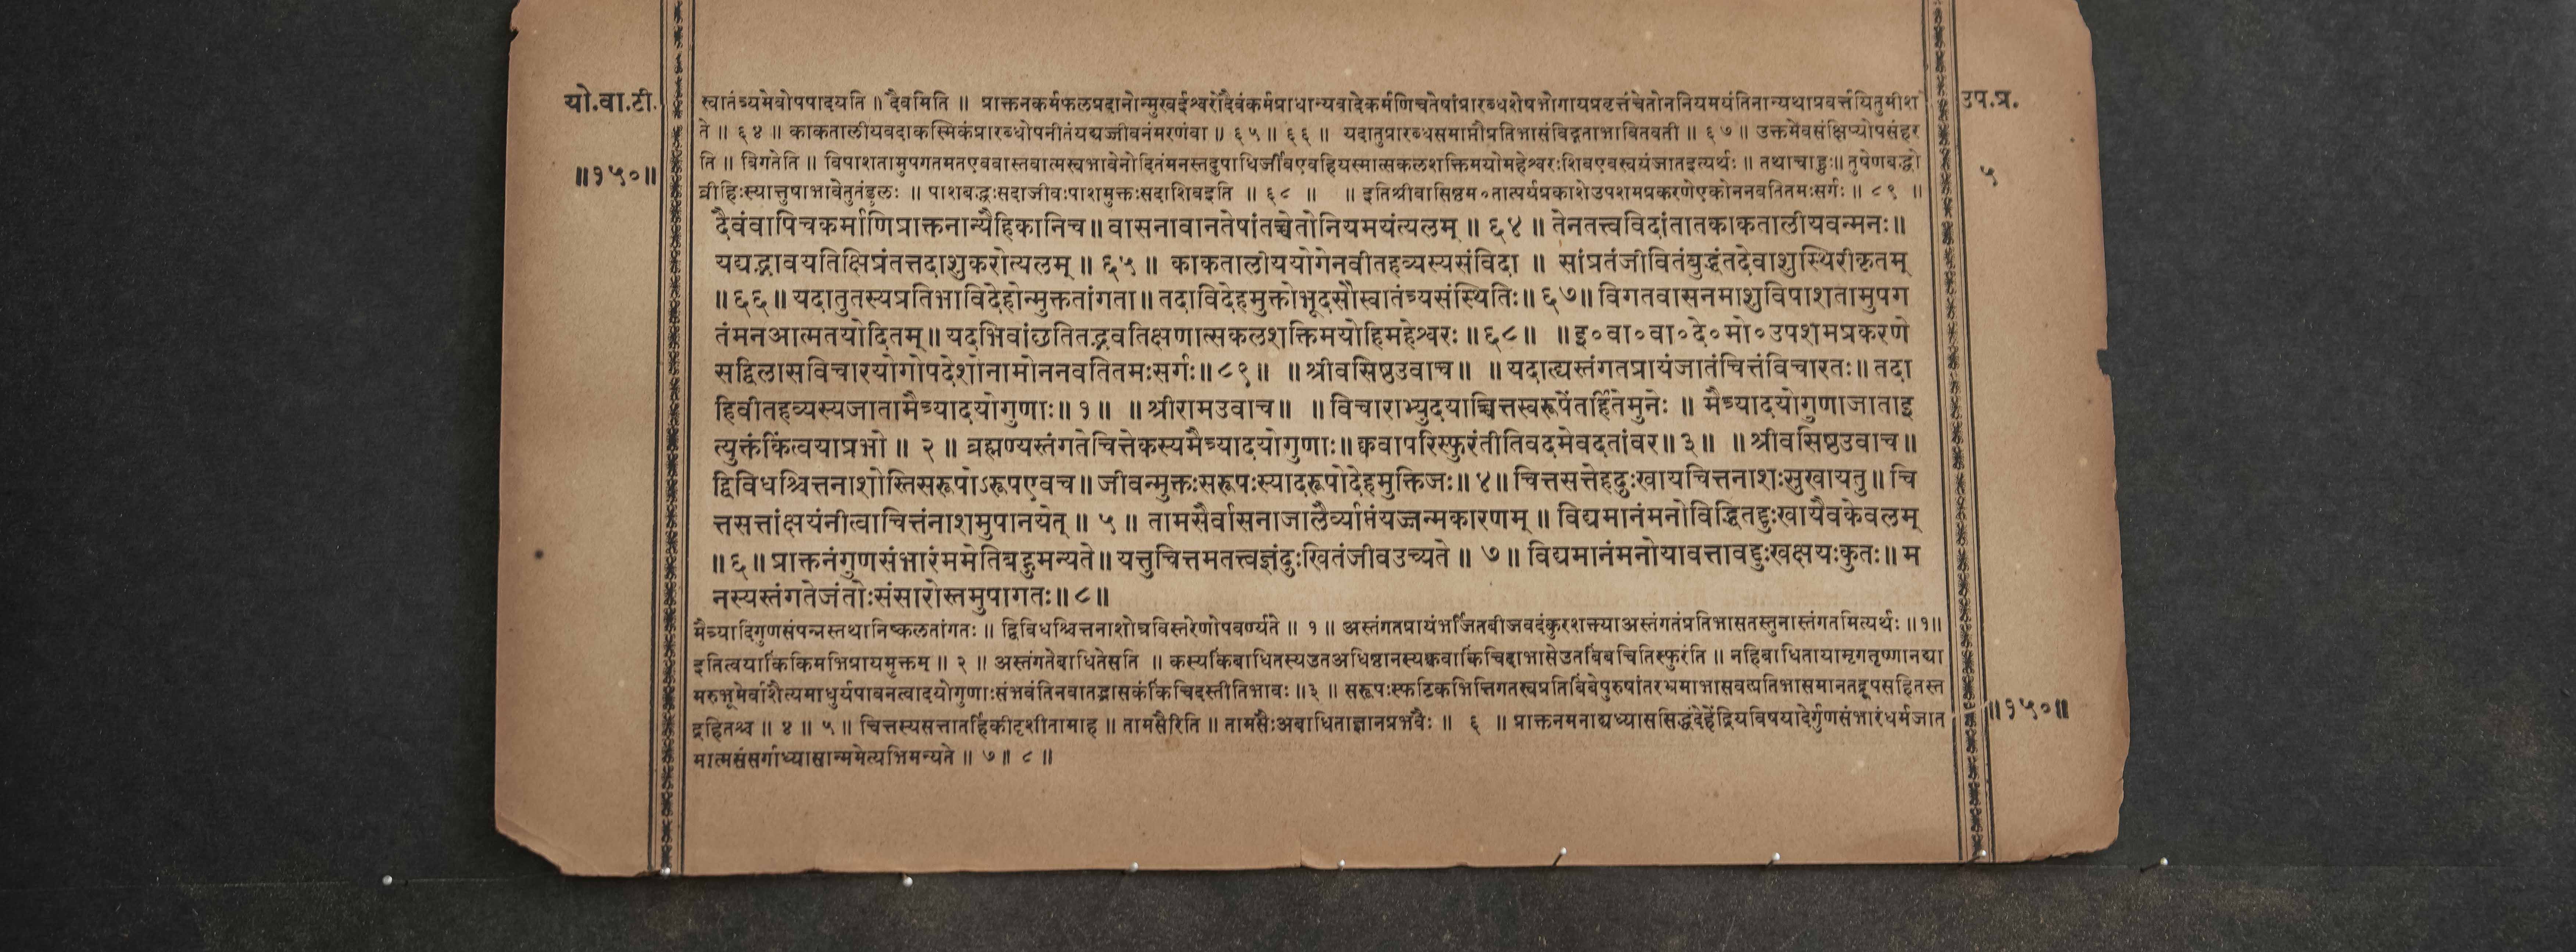 यो.वा.टी.
॥१५०॥
स्वातंत्र्यमेवोपपादयति ॥ दैवमिति ॥ प्राक्तनकर्मफलप्रदानोन्मुखईश्वरोदैवंकर्मप्राधान्यवादेकर्मणिचतेषांप्रारब्धशेषभोगायप्रवृत्तंचेतोननियमयंतिनान्यथाप्रवर्त्तयितुमीश
ते ॥ ६४ ॥ काकतालीयवदाकस्मिकंप्रारब्धोपनीतंयद्यज्जीवनंमरणंवा ॥ ६५ ॥ ६६ ॥ यदातुप्रारब्धसमाप्तौप्रतिभासंविद्गताभावितवती ॥ ६७ ॥ उक्तमेवसंक्षिप्योपसंहर
ति ॥ विगतेति ॥ विपाशतामुपगतमतएववास्तवात्मस्वभावेनोदितंमनस्तदुपाधिर्जीवएवहियस्मात्सकलशक्तिमयोमहेश्वरःशिवएवस्वयंजातइत्यर्थः ॥ तथाचाहुः॥ तुषेणबद्धो
व्रीहिःस्यात्तुषाभावेतुतंडुलः ॥ पाशबद्धःसदाजीवःपाशमुक्तःसदाशिवइति ॥ ६८ ॥ ॥ इतिश्रीवासिष्ठम०तात्पर्यप्रकाशेउपशमप्रकरणेएकोननवतितमःसर्गः ॥ ८९ ॥
दैवंवापिचकर्माणिप्राक्तनान्यैहिकानिच॥ वासनावानतेषांतच्चेतोनियमयंत्यलम् ॥ ६४ ॥ तेनतत्त्वविदांतातकाकतालीयवन्मनः॥
यद्यद्भावयतिक्षिप्रंतत्तदाशुकरोत्यलम् ॥ ६५ ॥ काकतालीययोगेनवीतहव्यस्यसंविदा ॥ सांप्रतंजीवितंबुद्धंतदेवाशुस्थिरीकृतम्
॥ ६६॥ यदातुतस्यप्रतिभाविदेहोन्मुक्ततांगता॥ तदाविदेहमुक्तोभूदसौस्वातंत्र्यसंस्थितिः॥ ६७॥ विगतवासनमाशुविपाशतामुपग
तंमनआत्मतयोदितम्॥ यदभिवांछतितद्भवतिक्षणात्सकलशक्तिमयोहिमहेश्वरः ॥६८॥ ॥इ०वा०वा०दे०मो०उपशमप्रकरणे
सद्विलासविचारयोगोपदेशोनामोननवतितमःसर्गः॥८९॥ ॥श्रीवसिष्ठउवाच॥ ॥यदात्व्यस्तंगतप्रायंजातंचित्तंविचारतः॥ तदा
हिवीतहव्यस्यजातामैत्र्यादयोगुणाः॥ १॥ ॥श्रीरामउवाच॥ ॥विचाराभ्युदयाच्चित्तस्वरूपेंतर्हितेमुनेः ॥ मैत्र्यादयोगुणाजाताइ
त्युक्तंकिंत्वयाप्रभो ॥ २ ॥ ब्रह्मण्यस्तंगतेचित्तेकस्यमैत्र्यादयोगुणाः॥ क्कवापरिस्फुरंतीतिवदमेवदतांवर॥ ३॥ ॥श्रीवसिष्ठउवाच॥
द्विविधश्चित्तनाशोस्तिसरूपोऽरूपएवच॥ जीवन्मुक्तःसरूपःस्यादरूपोदेहमुक्तिजः॥ ४॥ चित्तसत्तेहदुःखायचित्तनाशःसुखायतु॥ चि
त्तसत्तांक्षयंनीत्वाचित्तंनाशमुपानयेत् ॥ ५ ॥ तामसैर्वासनाजालैर्व्याप्तंयज्जन्मकारणम् ॥ विद्यमानंमनोविद्धितद्दुःखायैवकेवलम्
॥६॥ प्राक्तनंगुणसंभारंममेतिबहुमन्यते॥ यत्तुचित्तमतत्त्वज्ञंदुःखितंजीवउच्यते ॥ ७॥ विद्यमानंमनोयावत्तावद्दुःखक्षयःकुतः॥ म
नस्यस्तंगतेजंतोःसंसारोस्तमुपागतः॥ ८॥
मैत्र्यादिगुणसंपन्नस्तथानिष्कलतांगतः ॥ द्विविधश्चित्तनाशोत्रविस्तरेणोपवर्ण्यते ॥ १ ॥ अस्तंगतप्रायंभर्जितबीजवदंकुरशक्त्याअस्तंगतंप्रतिभासतस्तुनास्तंगतमित्यर्थः ॥१॥
इतित्वयाकिंकिमभिप्रायमुक्तम् ॥ २ ॥ अस्तंगतेबाधितेसति ॥ कस्यकिंबाधितस्यउतअधिष्ठानस्यक्कवाकिंचिदाभासेउतबिंबचितिस्फुरंति ॥ नहिबाधितायामृगतृष्णानद्या
मरुभूमेर्वाशैत्यमाधुर्यपावनत्वादयोगुणाःसंभवंतिनवातद्भासकंकिंचिदस्तीतिभावः ॥३ ॥ सरूपःस्फटिकभित्तिगतस्वप्रतिबिंबेपुरुषांतरभ्रमाभासवत्प्रतिभासमानतद्रूपसहितस्त
द्रहितश्च ॥ ४ ॥ ५ ॥ चित्तस्यसत्तातर्हिकीदृशीतामाह ॥ तामसैरिति ॥ तामसैःअबाधिताज्ञानप्रभवैः ॥ ६ ॥ प्राक्तनमनाद्यध्याससिद्धंदेहेंद्रियविषयादेर्गुणसंभारंधर्मजात
मात्मसंसर्गाध्यासान्ममेत्यभिमन्यते ॥ ७॥ ८ ॥
उप.प्र.
५
॥१५०॥